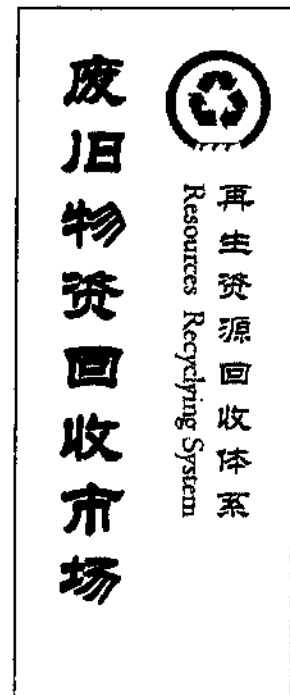 再生资源回收体系
Resources Recyclying System
废旧物资回收市场